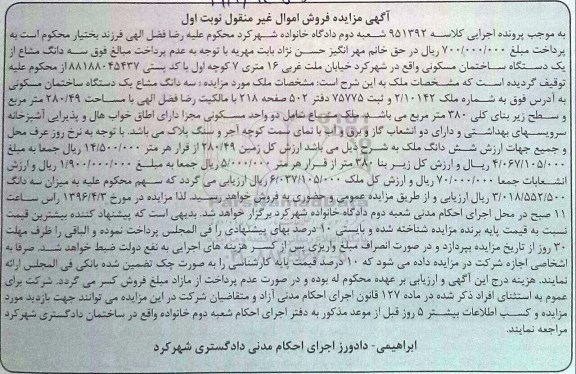 آگهی مزایده فروش اموال غیر منقول نوبت اول
به موجب پرونده اجرایی کلاسه ۹۵۱۳۹۲ شعبه دوم دادگاه خانواده شهرکرد محکوم علیه رضا فضل الهی فرزند بختیار محکوم است به
پرداخت مبلغ ۷۰۰/۰۰۰/۰۰۰ ریال در حق خانم مهر انگیز حسن نژاد بابت مهریه با توجه به عدم پرداخت مبالغ فوق سه دانگ مشاع از
یک دستگاه ساختمان مسکونی واقع در شهرکرد خیابان ملت غربی ۱۶ متری ۷ کوچه اول با کد پستی ۸۸۱۸۸۰۴۵۴۳۷ از محکوم علیه
توقیف گردیده است که مشخصات ملک به این شرح است: مشخصات ملک مورد مزایده : سه دانگ مشاع یک دستگاه ساختمان مسکونی
به آدرس فوق به شماره ملک ۲/۱۰۱۴۲ و ثبت ۷۵۷۷۵ دفتر ۵۰۲ صفحه ۲۱۸ با مالکیت رضا فضل الهی با مساحت ۲۸۰/۴۹ متر مربع
و سطح زیر بنای کلی ۳۸۰ متر مربع می باشد. ملک مشاع شامل دو واحد مسکونی مجزا دارای اطاق خواب هال و پذیرایی آشپزخانه
سرویسهای بهداشتی و دارای دو انشعاب گاز و برق و آب با نمای سمت کوچه آجر و سنگ پلاک می باشد. با توجه به نرخ روز عرف محل
و جمیع جهات ارزش شش دانگ ملک به شرح ذیل می باشد ارزش کل زمین ۲۸۰/۴۹ از قرار هر متر ۱۴/۵۰۰/۰۰۰ ریال جمعا به مبلغ
۴/۰۶۷/۱۰۵/۰۰۰ ریال و ارزش کل زیر بنا ۳۸۰ متر از قرار هر متر ۵/۰۰۰/۰۰۰ ریال جمعا به مبلغ ۱/۹۰۰/۰۰۰/۰۰۰ ریال و ارزش
انشعابات جمعا ۷۰/۰۰۰/۰۰۰ ریال و ارزش کل ملک ۶/۰۳۷/۱۰۵/۰۰۰ ریال ارزیابی می گردد که سهم محکوم علیه به میزان سه دانگ
۳/۰۱۸/۵۵۲/۵۰۰ ریال ارزیابی و از طریق مزایده عمومی و حضوری به فروش خواهد رسید. لذا مزایده در مورخ ۱۳۹۶/۴/۳ راس ساعت
۱۱ صبح در محل اجرای احکام مدنی شعبه دوم دادگاه خانواده شهرکرد برگزار خواهد شد. بدیهی است که پیشنهاد کننده بیشترین قیمت
نسبت به قیمت پایه برنده مزایده شناخته شده و بایستی ۱۰ درصد بهای پیشنهادی را فی المجلس پرداخت نموده و الباقی را ظرف مهلت
۳۰ روز از تاریخ مزایده بپردازد و در صورت انصراف مبلغ واریزی پس از کسر هزینه های اجرایی به نفع دولت ضبط خواهد شد. صرفا به
اشخاصی اجازه شرکت در مزایده داده می شود که ۱۰ درصد قیمت پایه کارشناسی را به صورت چک تضمین شده بانکی فی المجلس ارائه
نمایند. هزینه درج این آگهی و ارزیابی بر عهده محکوم له بوده و در صورت عدم پرداخت از مازاد مبلغ فروش کسر می گردد. شرکت برای
عموم به استثنای افراد ذکر شده در ماده ۱۲۷ قانون اجرای احکام مدنی آزاد و متقاضیان شرکت در این مزایده می توانند جهت بازدید مورد
مزایده و کسب اطلاعات بیشتر ۵ روز قبل از موعد مذکور به دفتر اجرای احکام شعبه دوم خانواده واقع در ساختمان دادگستری شهرکرد
مراجعه نمایند.
ابراهیمی- دادورز اجرای احکام مدنی دادگستری شهرکرد